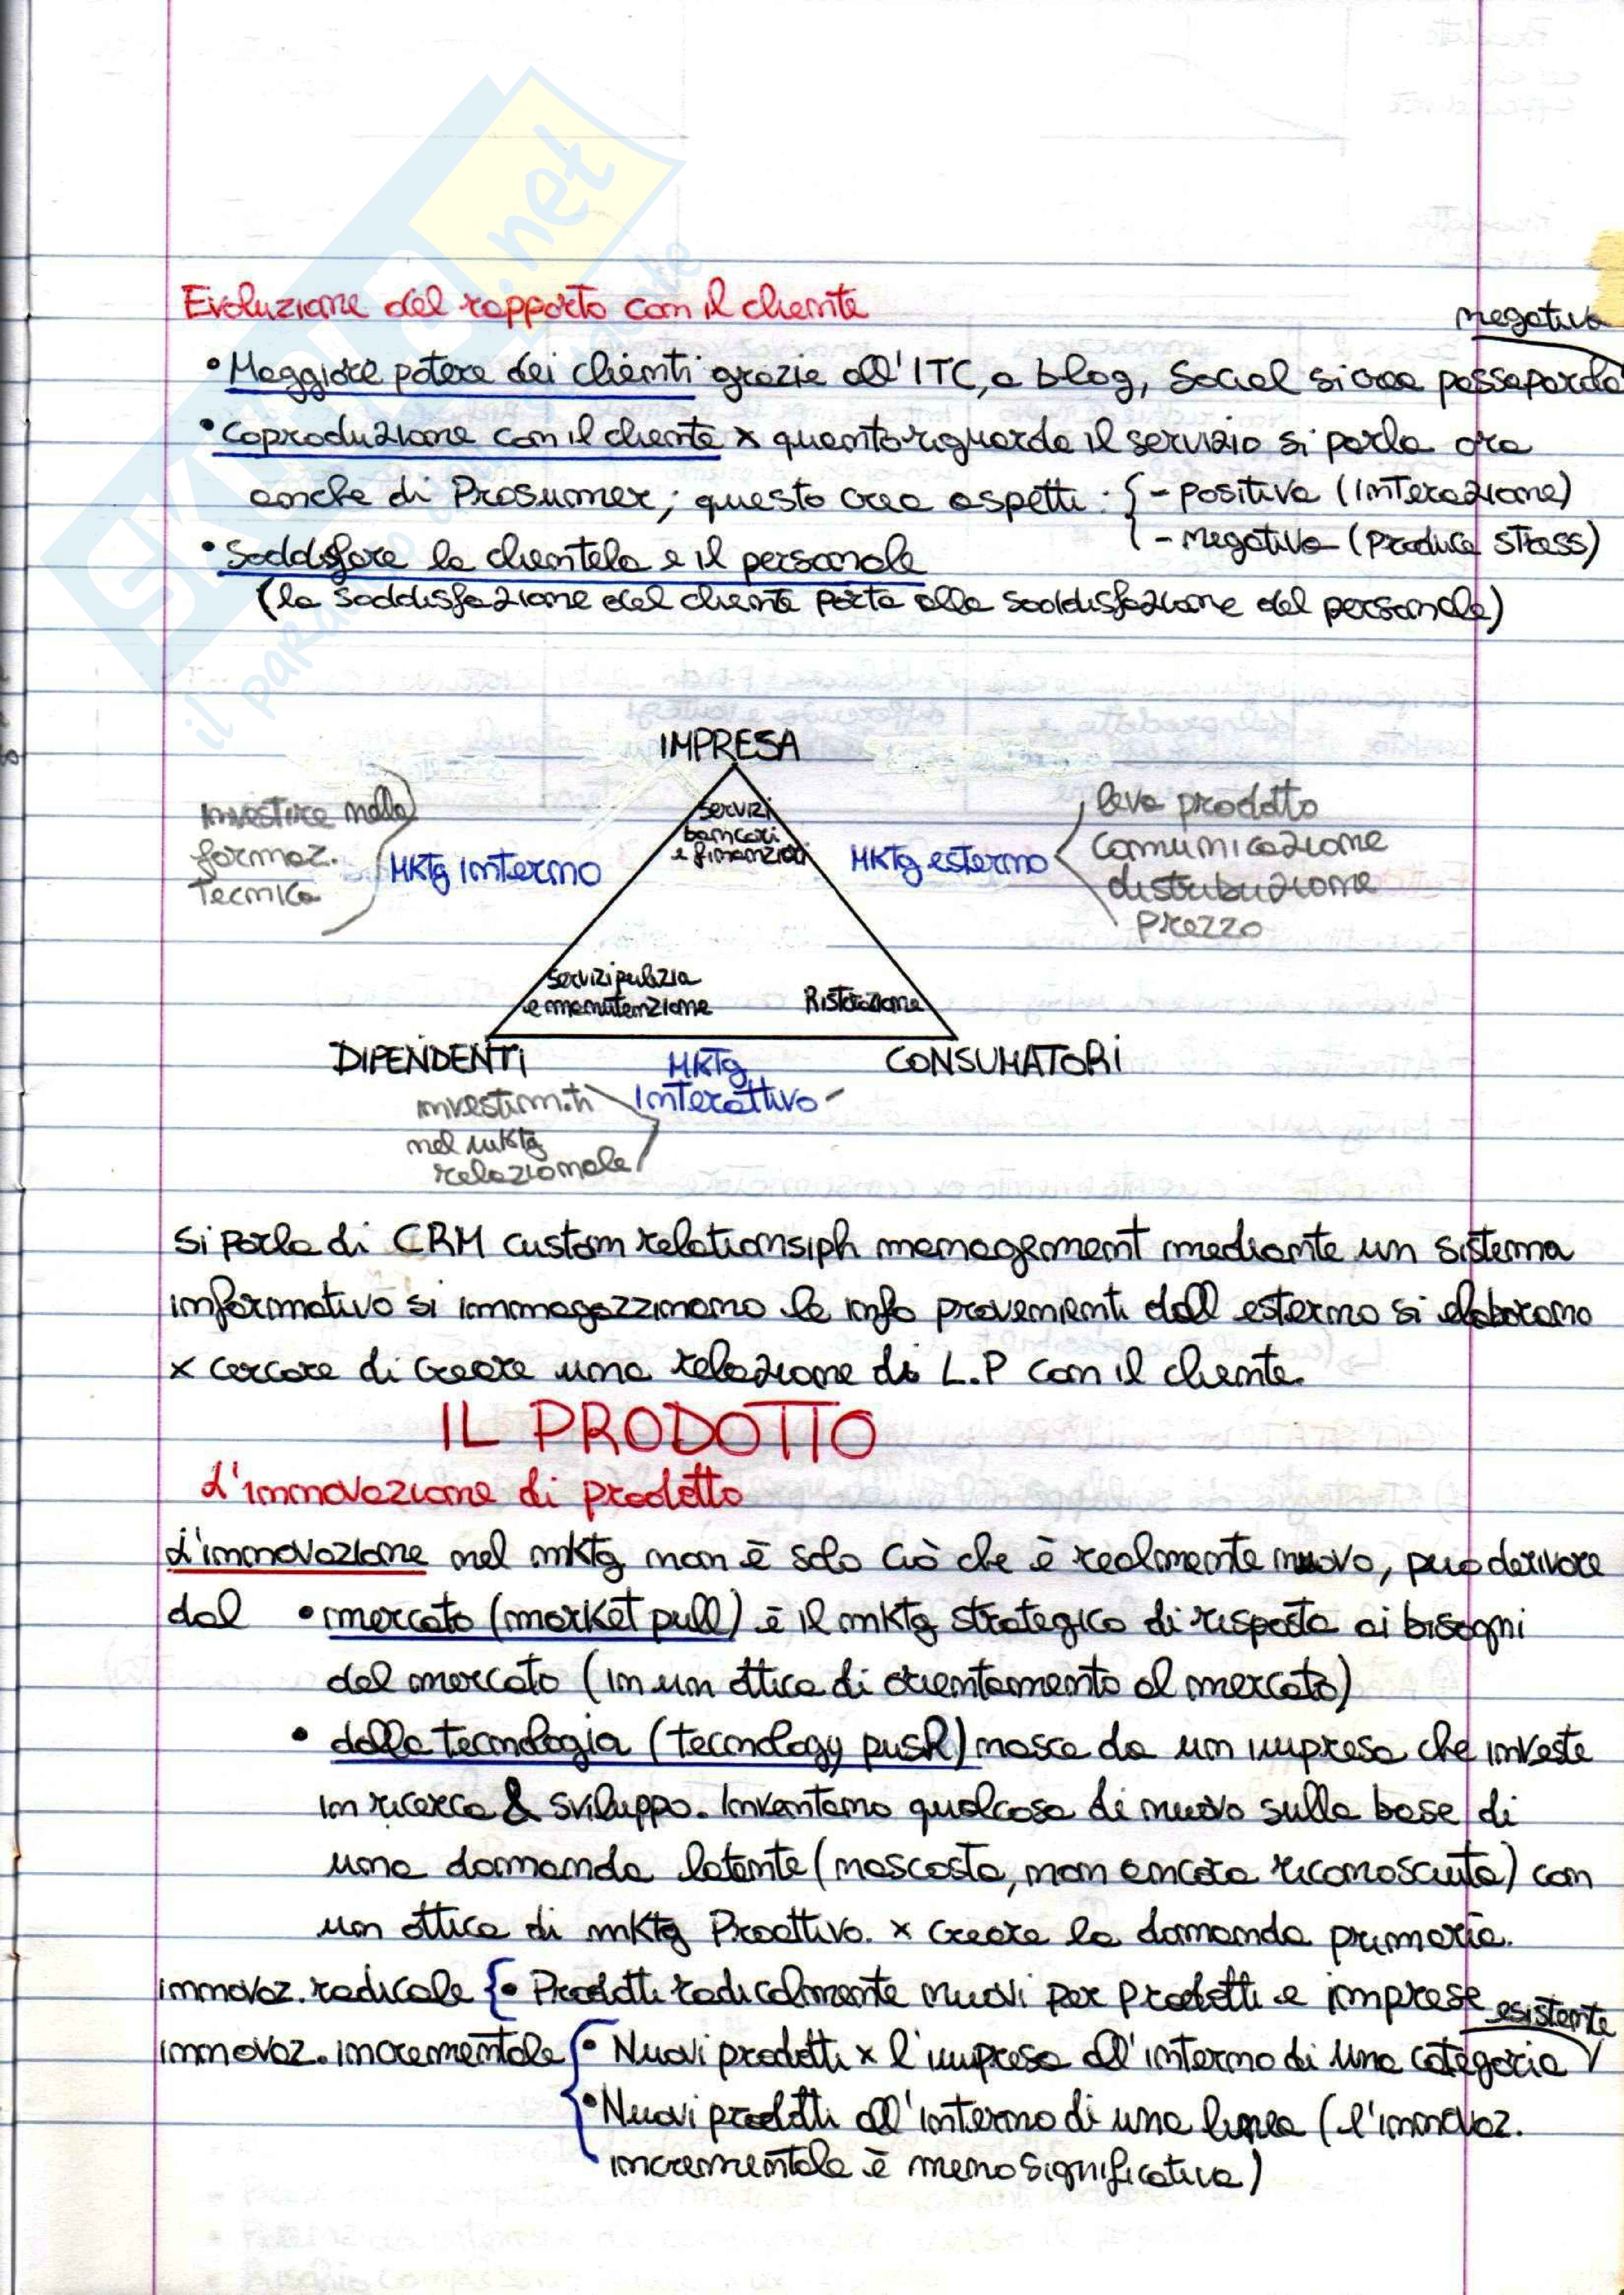 Evoluzione del rapporto con il cliente
negativo
• Maggiore potere dei clienti grazie all'ITC, a blog, Social si crea passaparola
• Coproduzione con il cliente x quanto riguarda il servizio si parla ora
anche di Prosumer; questo crea aspetti: { - positiva (interazione)
- negativa (produce stress)
• Soddisfare la clientela e il personale
(la soddisfazione del cliente porta alla soddisfazione del personale)
IMPRESA
servizi
bancari
e finanziari
investire nella
formaz.
tecnica
MKTg interno
MKTg esterno
leva prodotto
comunicazione
distribuzione
prezzo
servizi pulizia
e manutenzione
Ristorazione
DIPENDENTI
CONSUMATORI
MKTg
interattivo
investim.ti
nel mktg
relazionale
Si parla di CRM custom relationsiph management mediante un sistema
informativo si immagazzinano le info provenienti dall esterno si elaborano
x cercare di creare una relazione di L.P con il cliente.
IL PRODOTTO
L'innovazione di prodotto
L'innovazione nel mktg non è solo ciò che è realmente nuovo, puo derivare
dal • mercato (market pull) è il mktg strategico di risposta ai bisogni
del mercato (in un ottica di orientamento al mercato)
• dalla tecnologia (tecnology push) nasce da un impresa che investe
in ricerca & sviluppo. Inventano qualcosa di nuovo sulla base di
una domanda latente (nascosta, non ancora riconosciuta) con
un ottica di mktg Proattivo. x creare la domanda primaria.
innovaz. radicale { • Prodotti radicalmente nuovi per prodotti e imprese
esistente
innovaz. incrementale { • Nuovi prodotti x l'impresa all'interno di una categoria
• Nuovi prodotti all'interno di una linea (l'innovaz.
incrementale è meno significativa)
SKUOLA.net
il paradiso dello studente